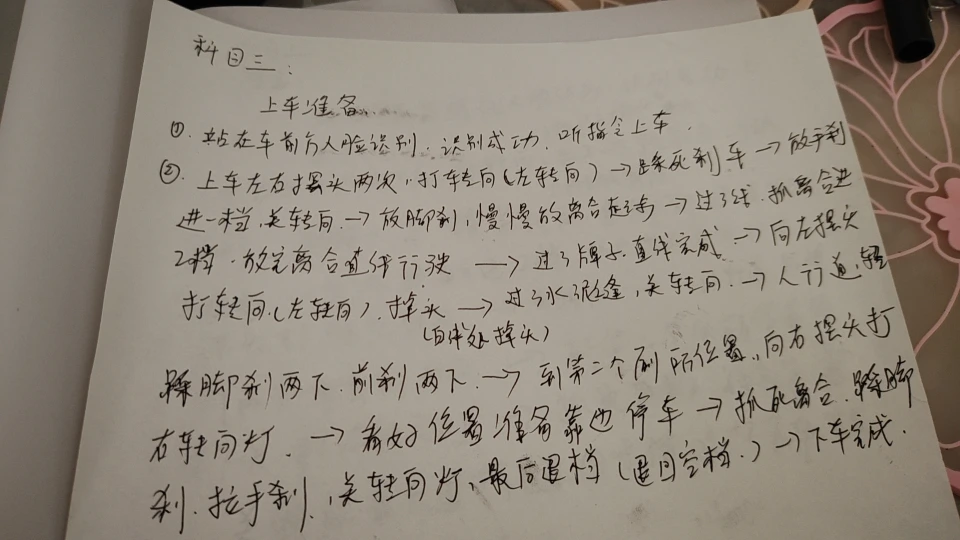 科目三：
上车准备
①. 站在车前方人脸识别. 识别成功. 听指令上车.
②. 上车左右摆头两次, 打车转向(左转向) → 踩死刹车 → 放手刹
进一档, 关转向. → 放脚刹, 慢慢放离合起步 → 过了线. 抓离合进
2档. 放完离合直线行驶 → 过了牌子. 直线完成 → 向左摆头
打转向.(左转向). 掉头 → 过了水泥缝, 关转向. → 人行道, 轻
(白线处掉头)
踩脚刹两下. 前刹两下. → 到第二个厕所位置, 向右摆头打
右转向灯. → 看好位置准备靠边停车 → 抓死离合. 踩脚
刹. 拉手刹, 关转向灯, 最后退档(退回空档.) → 下车完成.